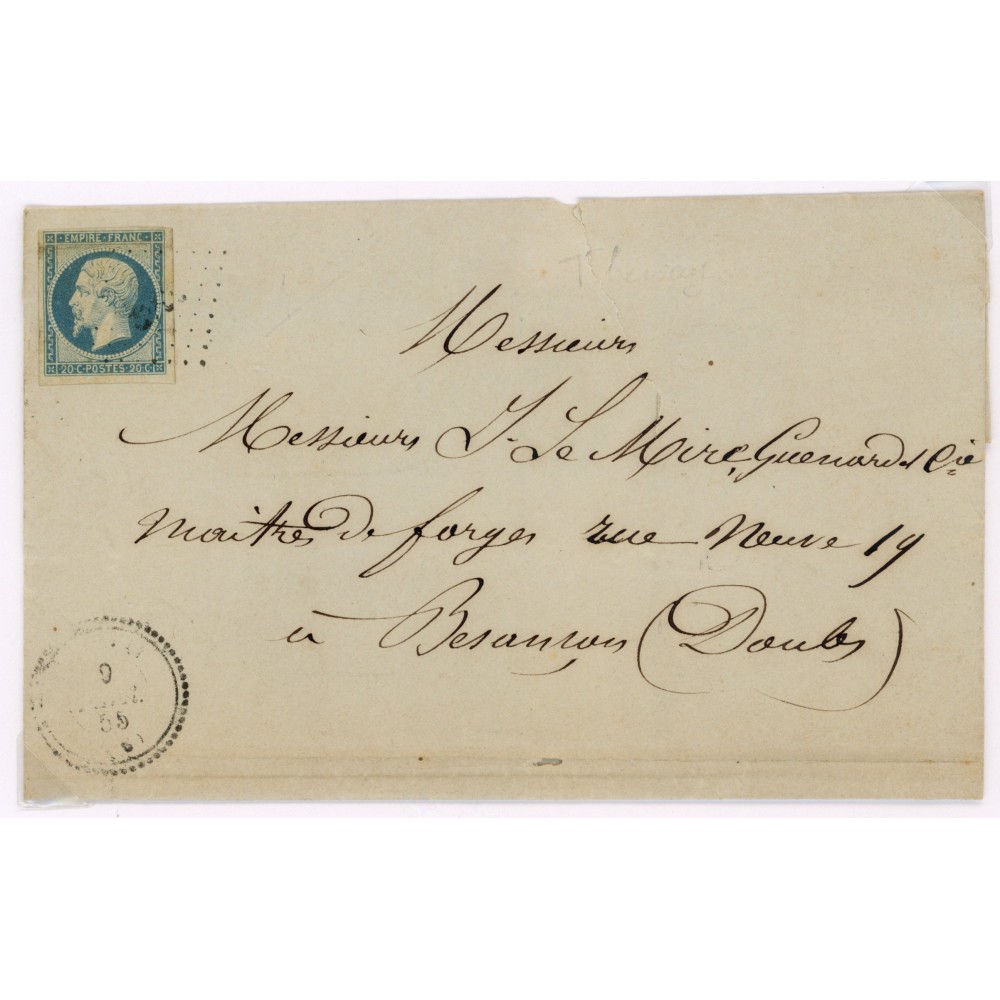 EMPIRE FRANC
20·C·POSTES·20·C
Messieurs
Messieurs J. Le Mire, Guenard & Cie
maitres de forges rue Neuve 19
à Besançon (Doubs)
9
55